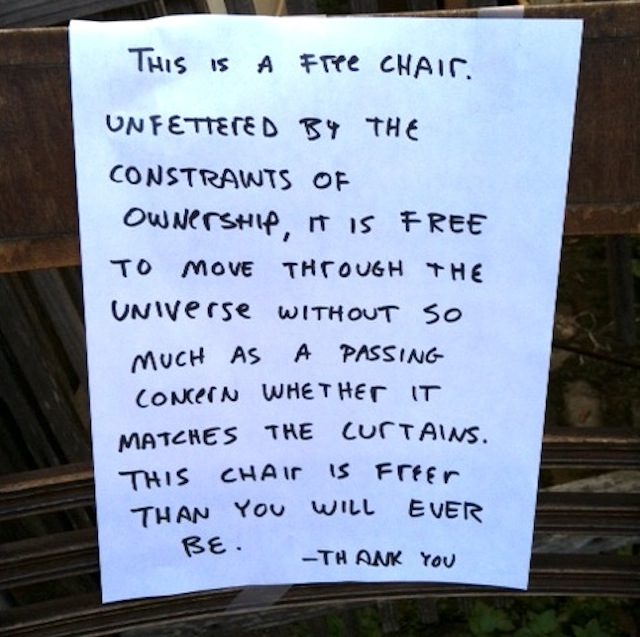 THIS IS A Free CHAIr.
UNFETTERED BY THE
CONSTRAINTS OF
OWNerSHIP, IT IS FREE
TO MOVE THrOUGH THE
UNIVerse WITHOUT SO
MUCH AS A PASSING
CONCerN WHETHer IT
MATCHES THE CUrTAINS.
THIS CHAIr IS Freer
THAN YOU WILL EVER
BE.
-THANK YOU